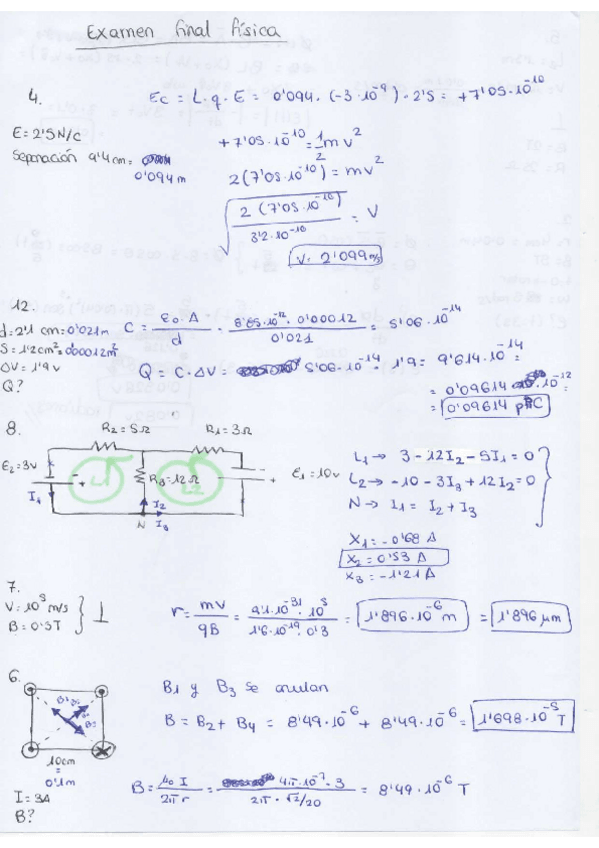 Examen final física
4.
Ec = L·q·E = 0'094·(-3·10⁻⁹)·2'5 = +7'05·10⁻¹⁰
E = 2'5 N/C
Separación 9'4 cm =
0'094 m
+7'05·10⁻¹⁰ = 1/2 m v²
2(7'05·10⁻¹⁰) = mv²
√(2(7'05·10⁻¹⁰) / 3'2·10⁻¹⁰) = V
V = 2'099 m/s
12.
d = 2'1 cm = 0'021m
S = 1'2cm² = 0'00012m²
ΔV = 1'9 v
Q?
C = ε₀·A / d = 8'85·10⁻¹²·0'00012 / 0'021 = 5'06·10⁻¹⁴
Q = C·ΔV = 5'06·10⁻¹⁴·1'9 = 9'614·10⁻¹⁴ =
= 0'09614·10⁻¹² =
= 0'09614 pC
8.
R₂ = 5Ω R₁ = 3Ω
E₂ = 3v R₃ = 12Ω E₁ = 10v
L1 L2
I₁ I₂
N I₃
L₁ → 3 - 12I₂ - 5I₁ = 0
L₂ → -10 - 3I₃ + 12I₂ = 0
N → I₁ = I₂ + I₃
X₁ = -0'68 A
X₂ = 0'53 A
X₃ = -1'21 A
7.
V = 10⁵ m/s
B = 0'3T
⊥
r = mv / qB = 9'1·10⁻³¹·10⁵ / 1'6·10⁻¹⁹·0'3 = 1'896·10⁻⁶ m = 1'896 μm
6.
B₁ y B₃ se anulan
B = B₂ + B₄ = 8'49·10⁻⁶ + 8'49·10⁻⁶ = 1'698·10⁻⁵ T
10cm
=
0'1m
I = 3A
B?
B = μ₀ I / 2π r = 4π·10⁻⁷·3 / 2π·√2/20 = 8'49·10⁻⁶ T